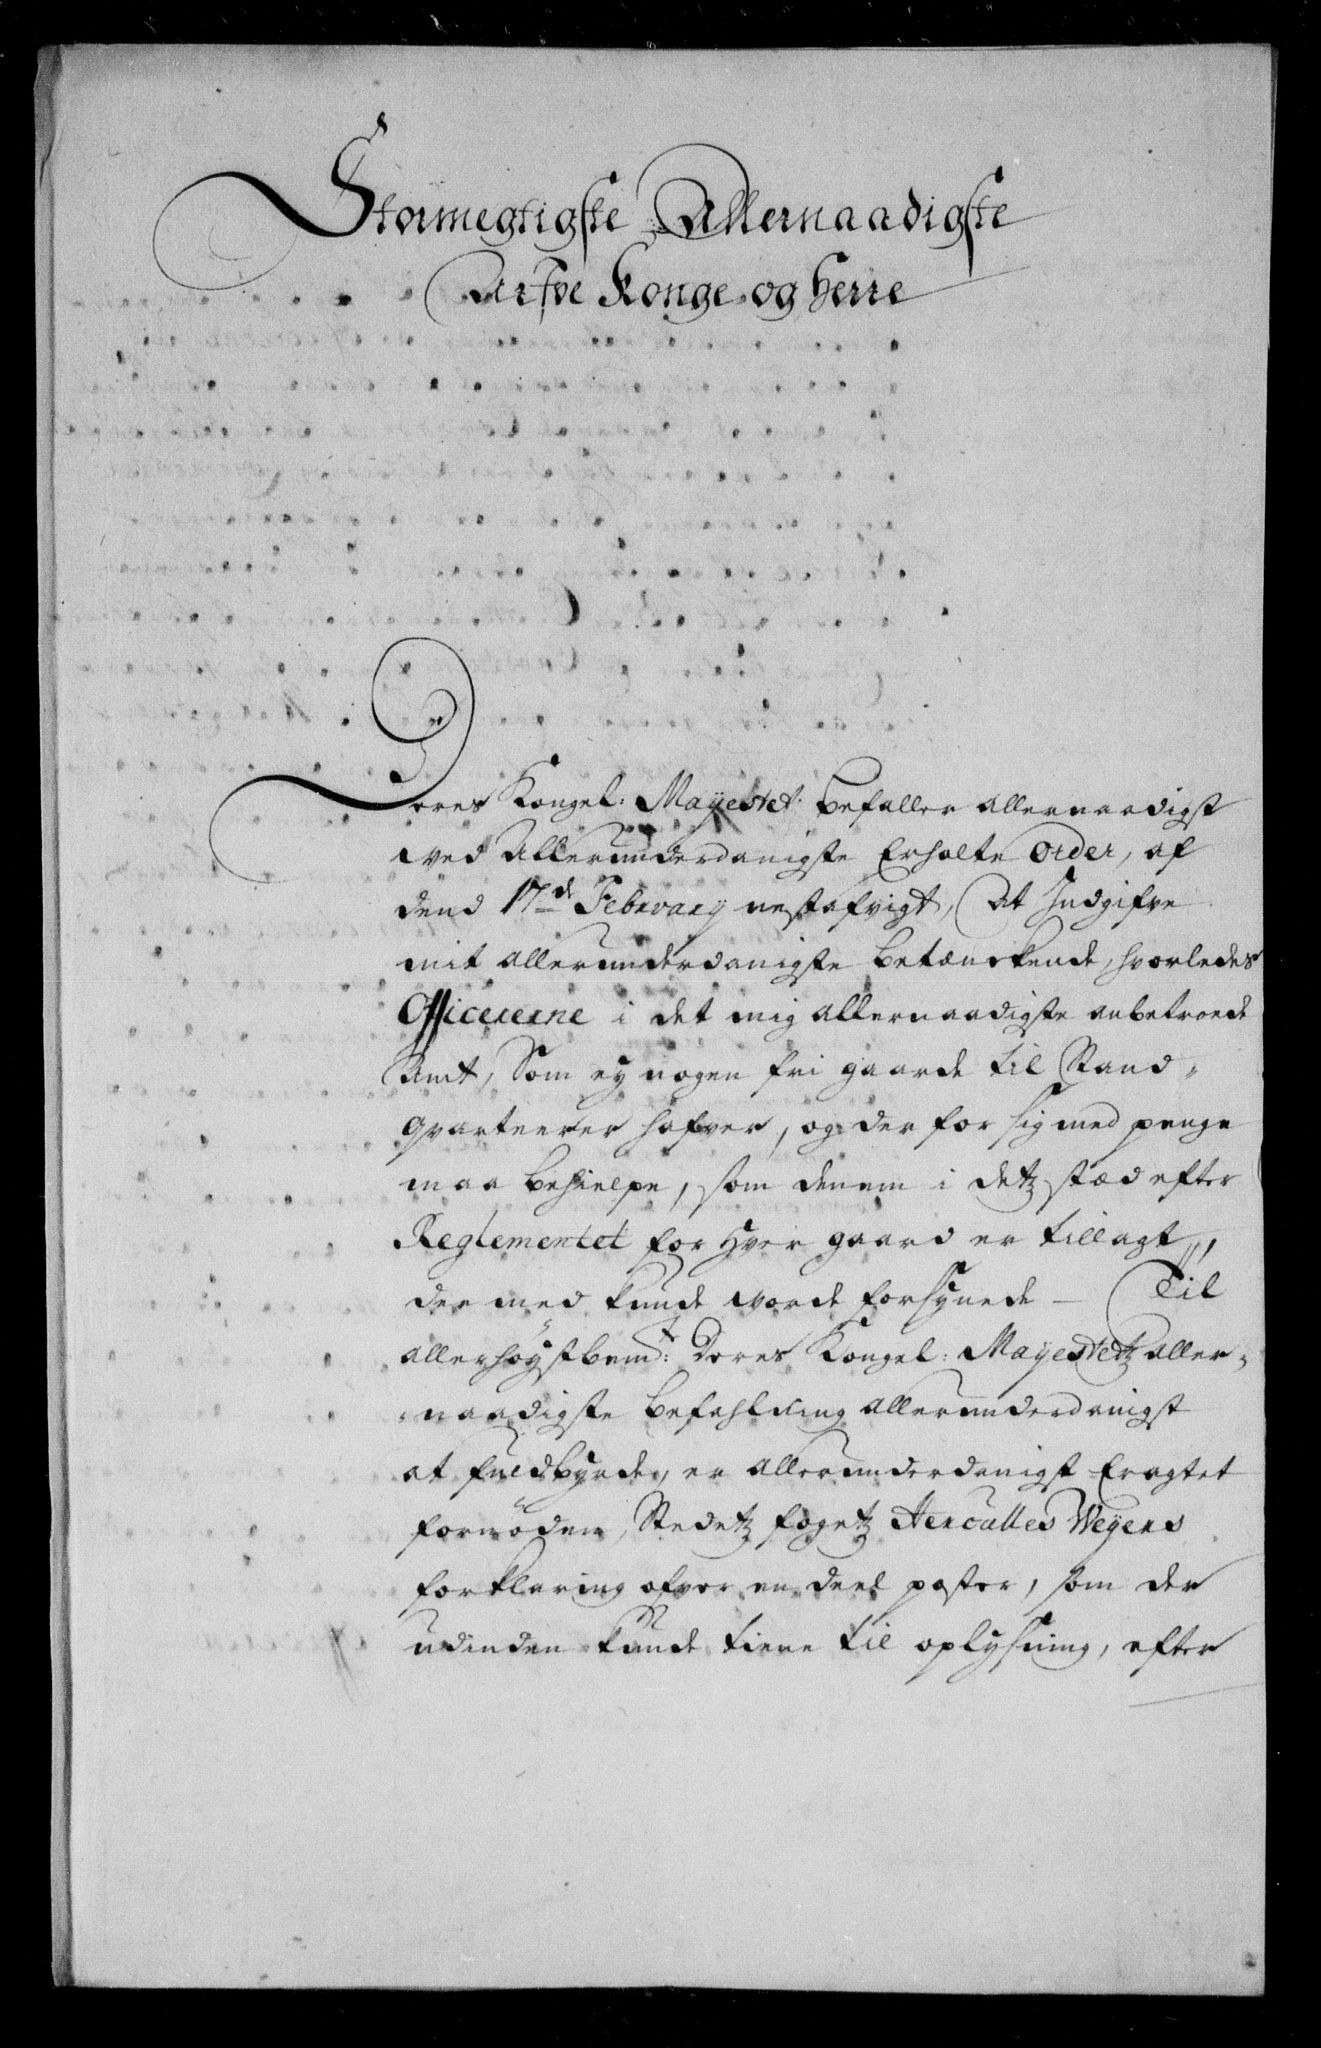 Stormegtigste Allernaadigste
Arfve Konge og Herre
Deres Kongel: Mayestet. befaller allernaadigst
ved Allerunderdanigste Erholte Order, af
dend 17de February nestafvigt, At Indgifve
mit allerunderdanigste betænckende, hvorledes
Officererne i det mig allernaadigste anbetroede
Amt, Som ey nogen fri gaarde til Stand-
qvarteerer hafver, og der for sig med penge
maa behielpe, som dennem i detz stæd efter
Reglementet for Hver gaard er tillagt,
der med kunde vorde forsynede – Til
allerhøystbemt: Deres Kongel: Mayestetz aller-
naadigste befahlning allerunderdanigst
at fuldbyrde, er allerunderdanigst Eragtet
fornøden, Stedetz fogetz Herculles Weyers
forklaring ofver en deel poster, som der
udinden kunde tiene til oplysning, efter